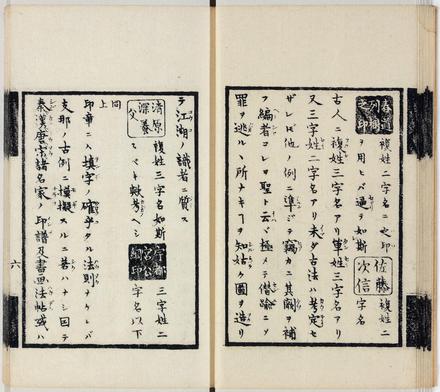 春道列樹之印 複姓二字名ニ之印
ヲ用ヒバ通ヲ如斯 佐藤次信 複姓二字名
古人ニ複姓三字名アリ単姓三字名アリ
又三字姓二字名アリ未ダ古法ハ考定セ
ザレ𪜈他ノ例ニ準ジテ竊カニ其闕ヲ補
フ編者コレヲ聖ト云ハ極メテ僭踰ニ
罪ヲ逃ル丶所ナキヿヲ知姑ク圖ヲ造リ
テ江湖ノ識者ニ質ス
清原深養父 複姓三字名如斯
スベキ歟考ヘシ 三字姓二字名以下
同上
印章ニハ填字ノ確乎タル法則ナケレバ
支那ノ古例ニ模擬スルニ若ハナシ因テ
秦漢唐宋諸名家ノ印譜及書画法帖或ハ
六